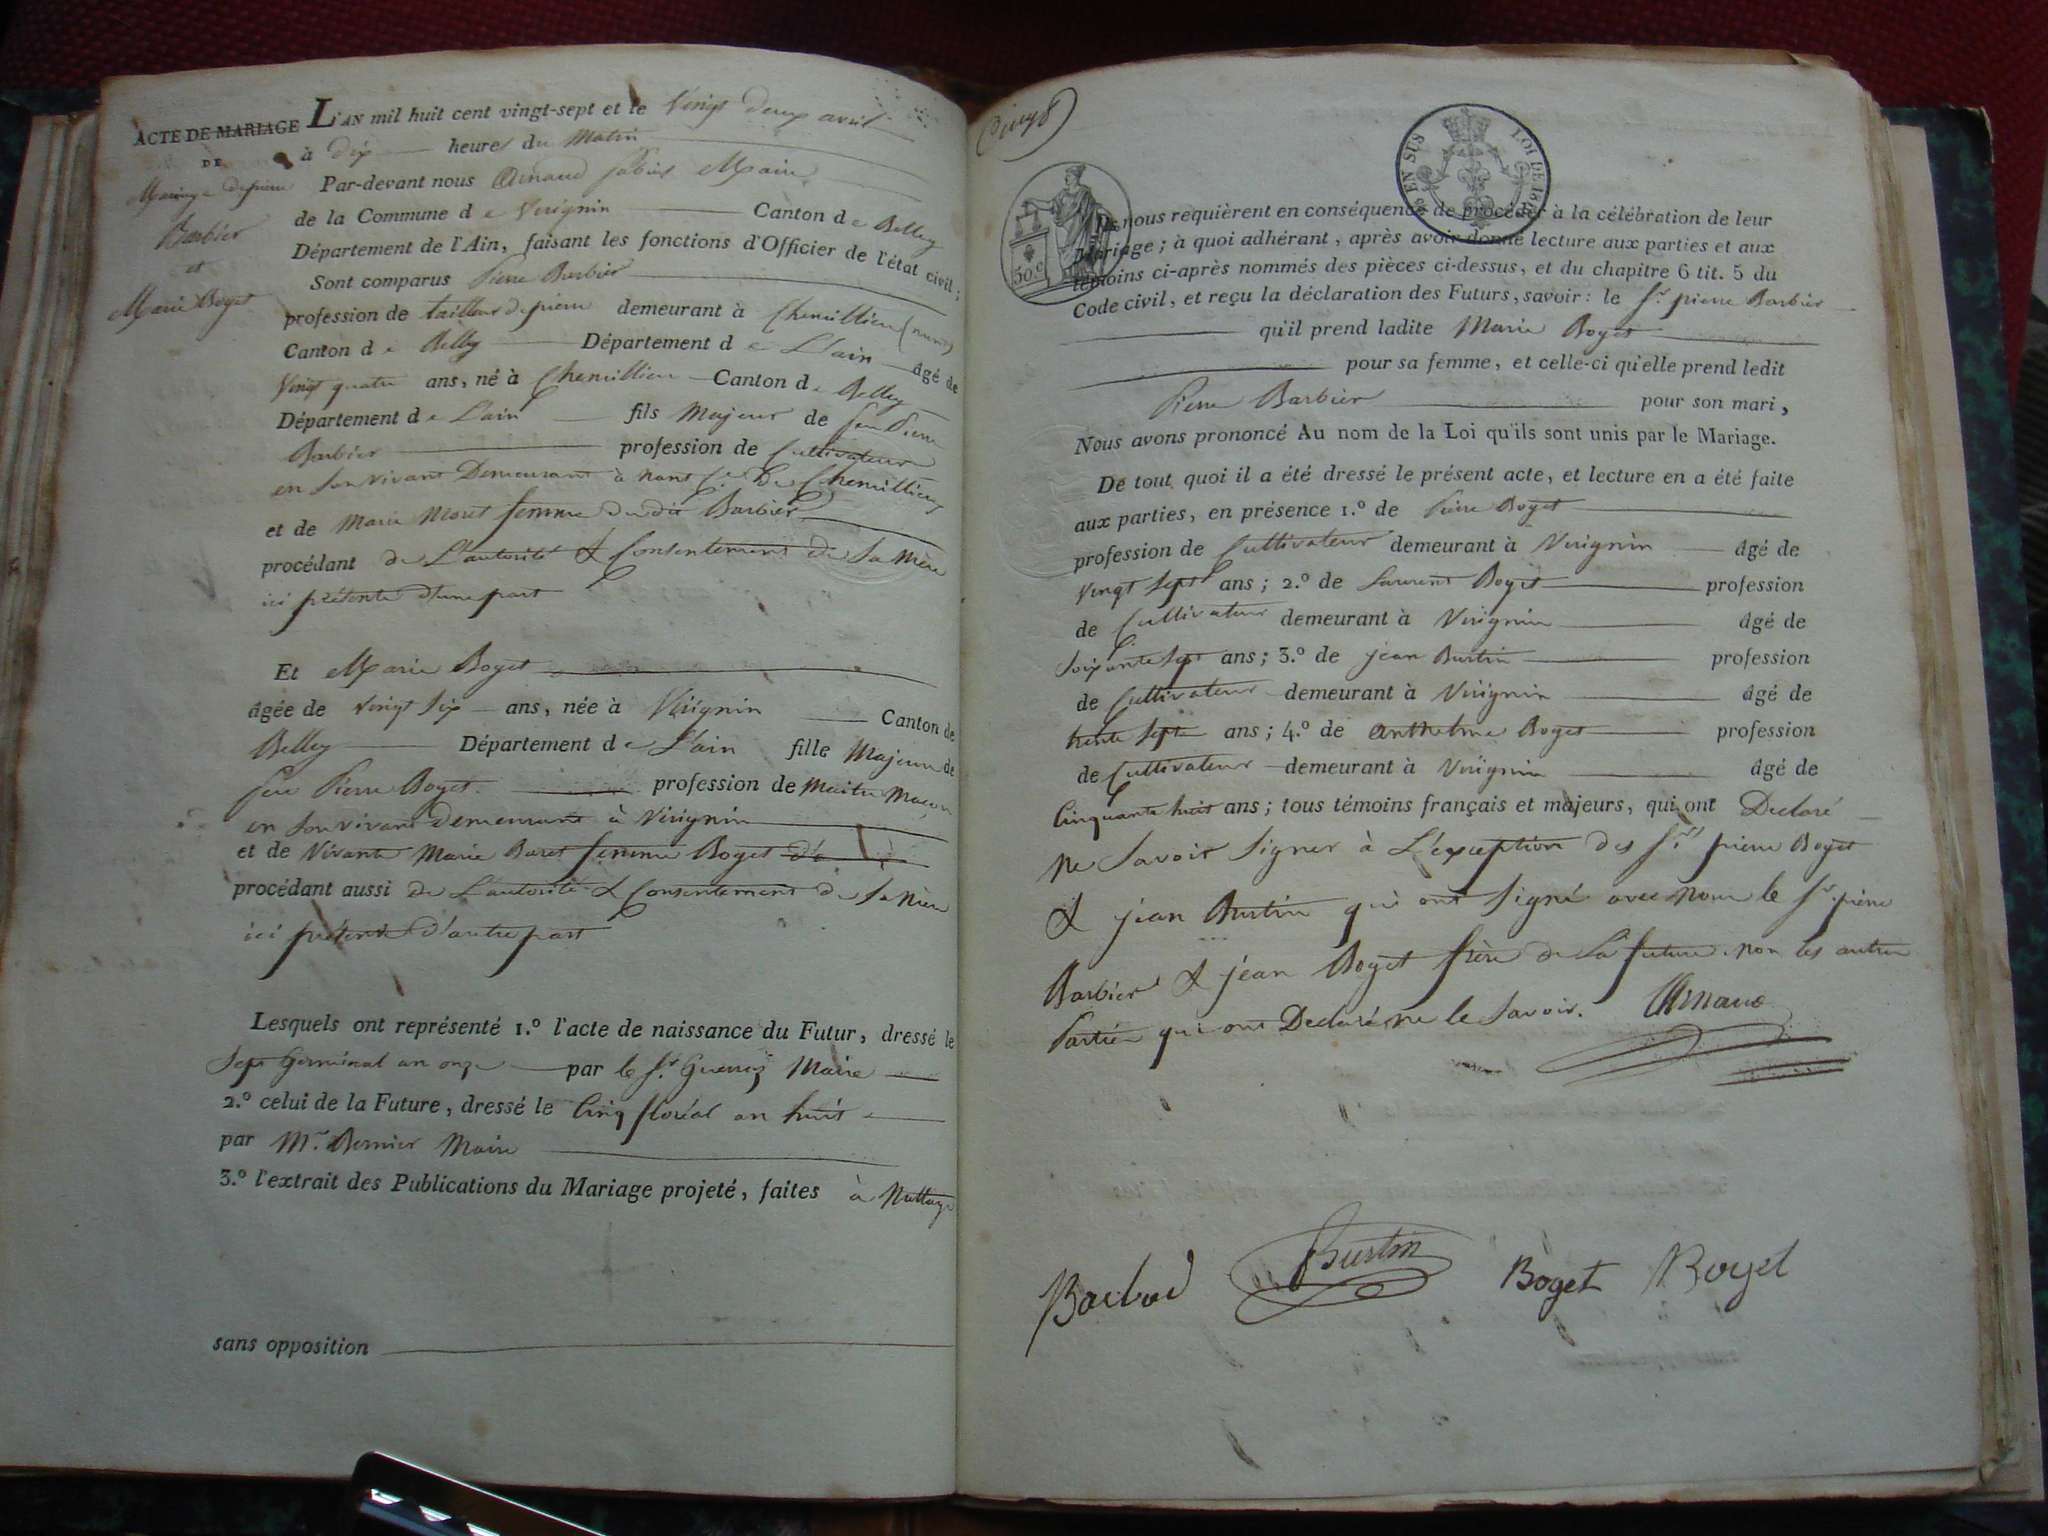 ACTE DE MARIAGE
DE
Mariage de pierre
Barbier
et
Marie Boget
L'AN mil huit cent vingt-sept et le Vingt deux avril
à dix heures du Matin
Par-devant nous Arnaud fabius Maire
de la Commune de Virignin Canton de Belley
Département de l'Ain, faisant les fonctions d'Officier de l'état civil ;
Sont comparus Pierre Barbier
profession de tailleur de pierre demeurant à Chemillieu
Canton de Belley Département de L'ain âgé de
Vingt quatre ans, né à Chemillieu Canton de Belley
Département de L'ain fils Majeur de feu Pierre
Barbier profession de Cultivateur
en Son vivant Demeurant à nant De Chemillieu
et de Marie Moret femme du dit Barbier
procédant de L'autorité & Consentement de Sa Mère
ici présente d'une part
Et Marie Boget
âgée de Vingt Six ans, née à Virignin Canton de
Belley Département de L'ain fille Majeure de
feu Pierre Boget profession de Maitre Maçon
en Son vivant Demeurant à Virignin
et de Vivante Marie Buret femme Boget
procédant aussi de L'autorité & Consentement de Sa Mère
ici présente d'autre part
Lesquels ont représenté 1.º l'acte de naissance du Futur, dressé le
Sept Germinal an onze par le Sr. Guerroz Maire
2.º celui de la Future, dressé le Cinq floréal an huit
par Mr. Bernier Maire
3.º l'extrait des Publications du Mariage projeté, faites à Nattage
sans opposition
EN SUS LOI DE
30.c
De nous requièrent en conséquence de procéder à la célébration de leur
Mariage ; à quoi adhérant, après avoir donné lecture aux parties et aux
témoins ci-après nommés des pièces ci-dessus, et du chapitre 6 tit. 5 du
Code civil, et reçu la déclaration des Futurs, savoir : le Sr. pierre Barbier
qu'il prend ladite Marie Boget
pour sa femme, et celle-ci qu'elle prend ledit
Pierre Barbier pour son mari,
Nous avons prononcé Au nom de la Loi qu'ils sont unis par le Mariage.
De tout quoi il a été dressé le présent acte, et lecture en a été faite
aux parties, en présence 1.º de Pierre Boget
profession de Cultivateur demeurant à Virignin âgé de
Vingt Sept ans ; 2.º de Laurent Boget profession
de Cultivateur demeurant à Virignin âgé de
Soixante Sept ans ; 3.º de jean Burtin profession
de Cultivateur demeurant à Virignin âgé de
trente Sept ans ; 4.º de Anthelme Boget profession
de Cultivateur demeurant à Virignin âgé de
Cinquante huit ans ; tous témoins français et majeurs, qui ont Declaré
ne Savoir Signer à L'exception des Srs. pierre Boget
& jean Burtin qui ont Signé avec nous le Sr. pierre
Barbier & jean Boget frère de La future. non les autres
Parties qui ont Declaré ne le Savoir. Arnaud
Burtin Boget Boget